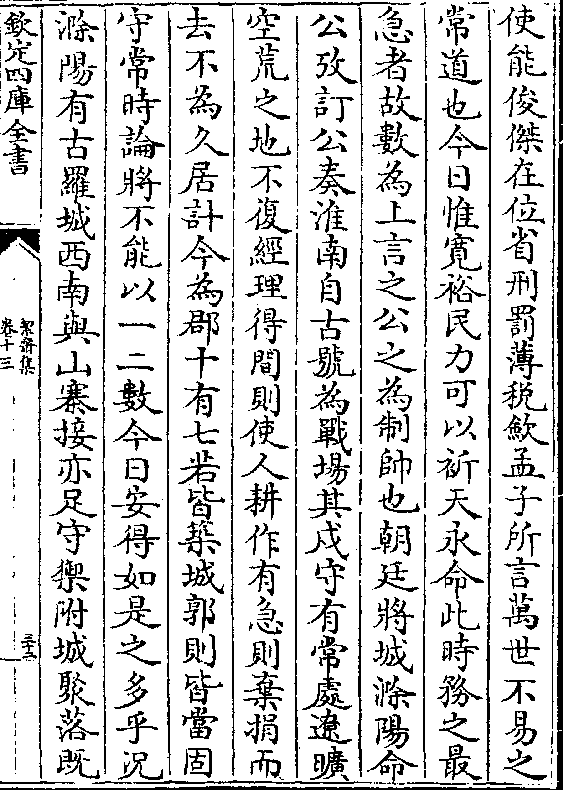 使能俊傑在位省刑罰薄稅歛孟子所言萬世不易之
常道也今日惟寛裕民力可以祈天永命此時務之最
急者故數為上言之公之為制帥也朝廷將城滁陽命
公攷訂公奏淮南自古號為戰場其戍守有常處遼曠
空荒之地不復經理得間則使人耕作有急則棄捐而
去不為久居計今為郡十有七若皆築城郭則皆當固
守常時論將不能以一二數今日安得如是之多乎況
滁陽有古羅城西南與山寨接亦足守禦附城聚落既
欽定四庫全書
絜齋集
卷十三
三十三